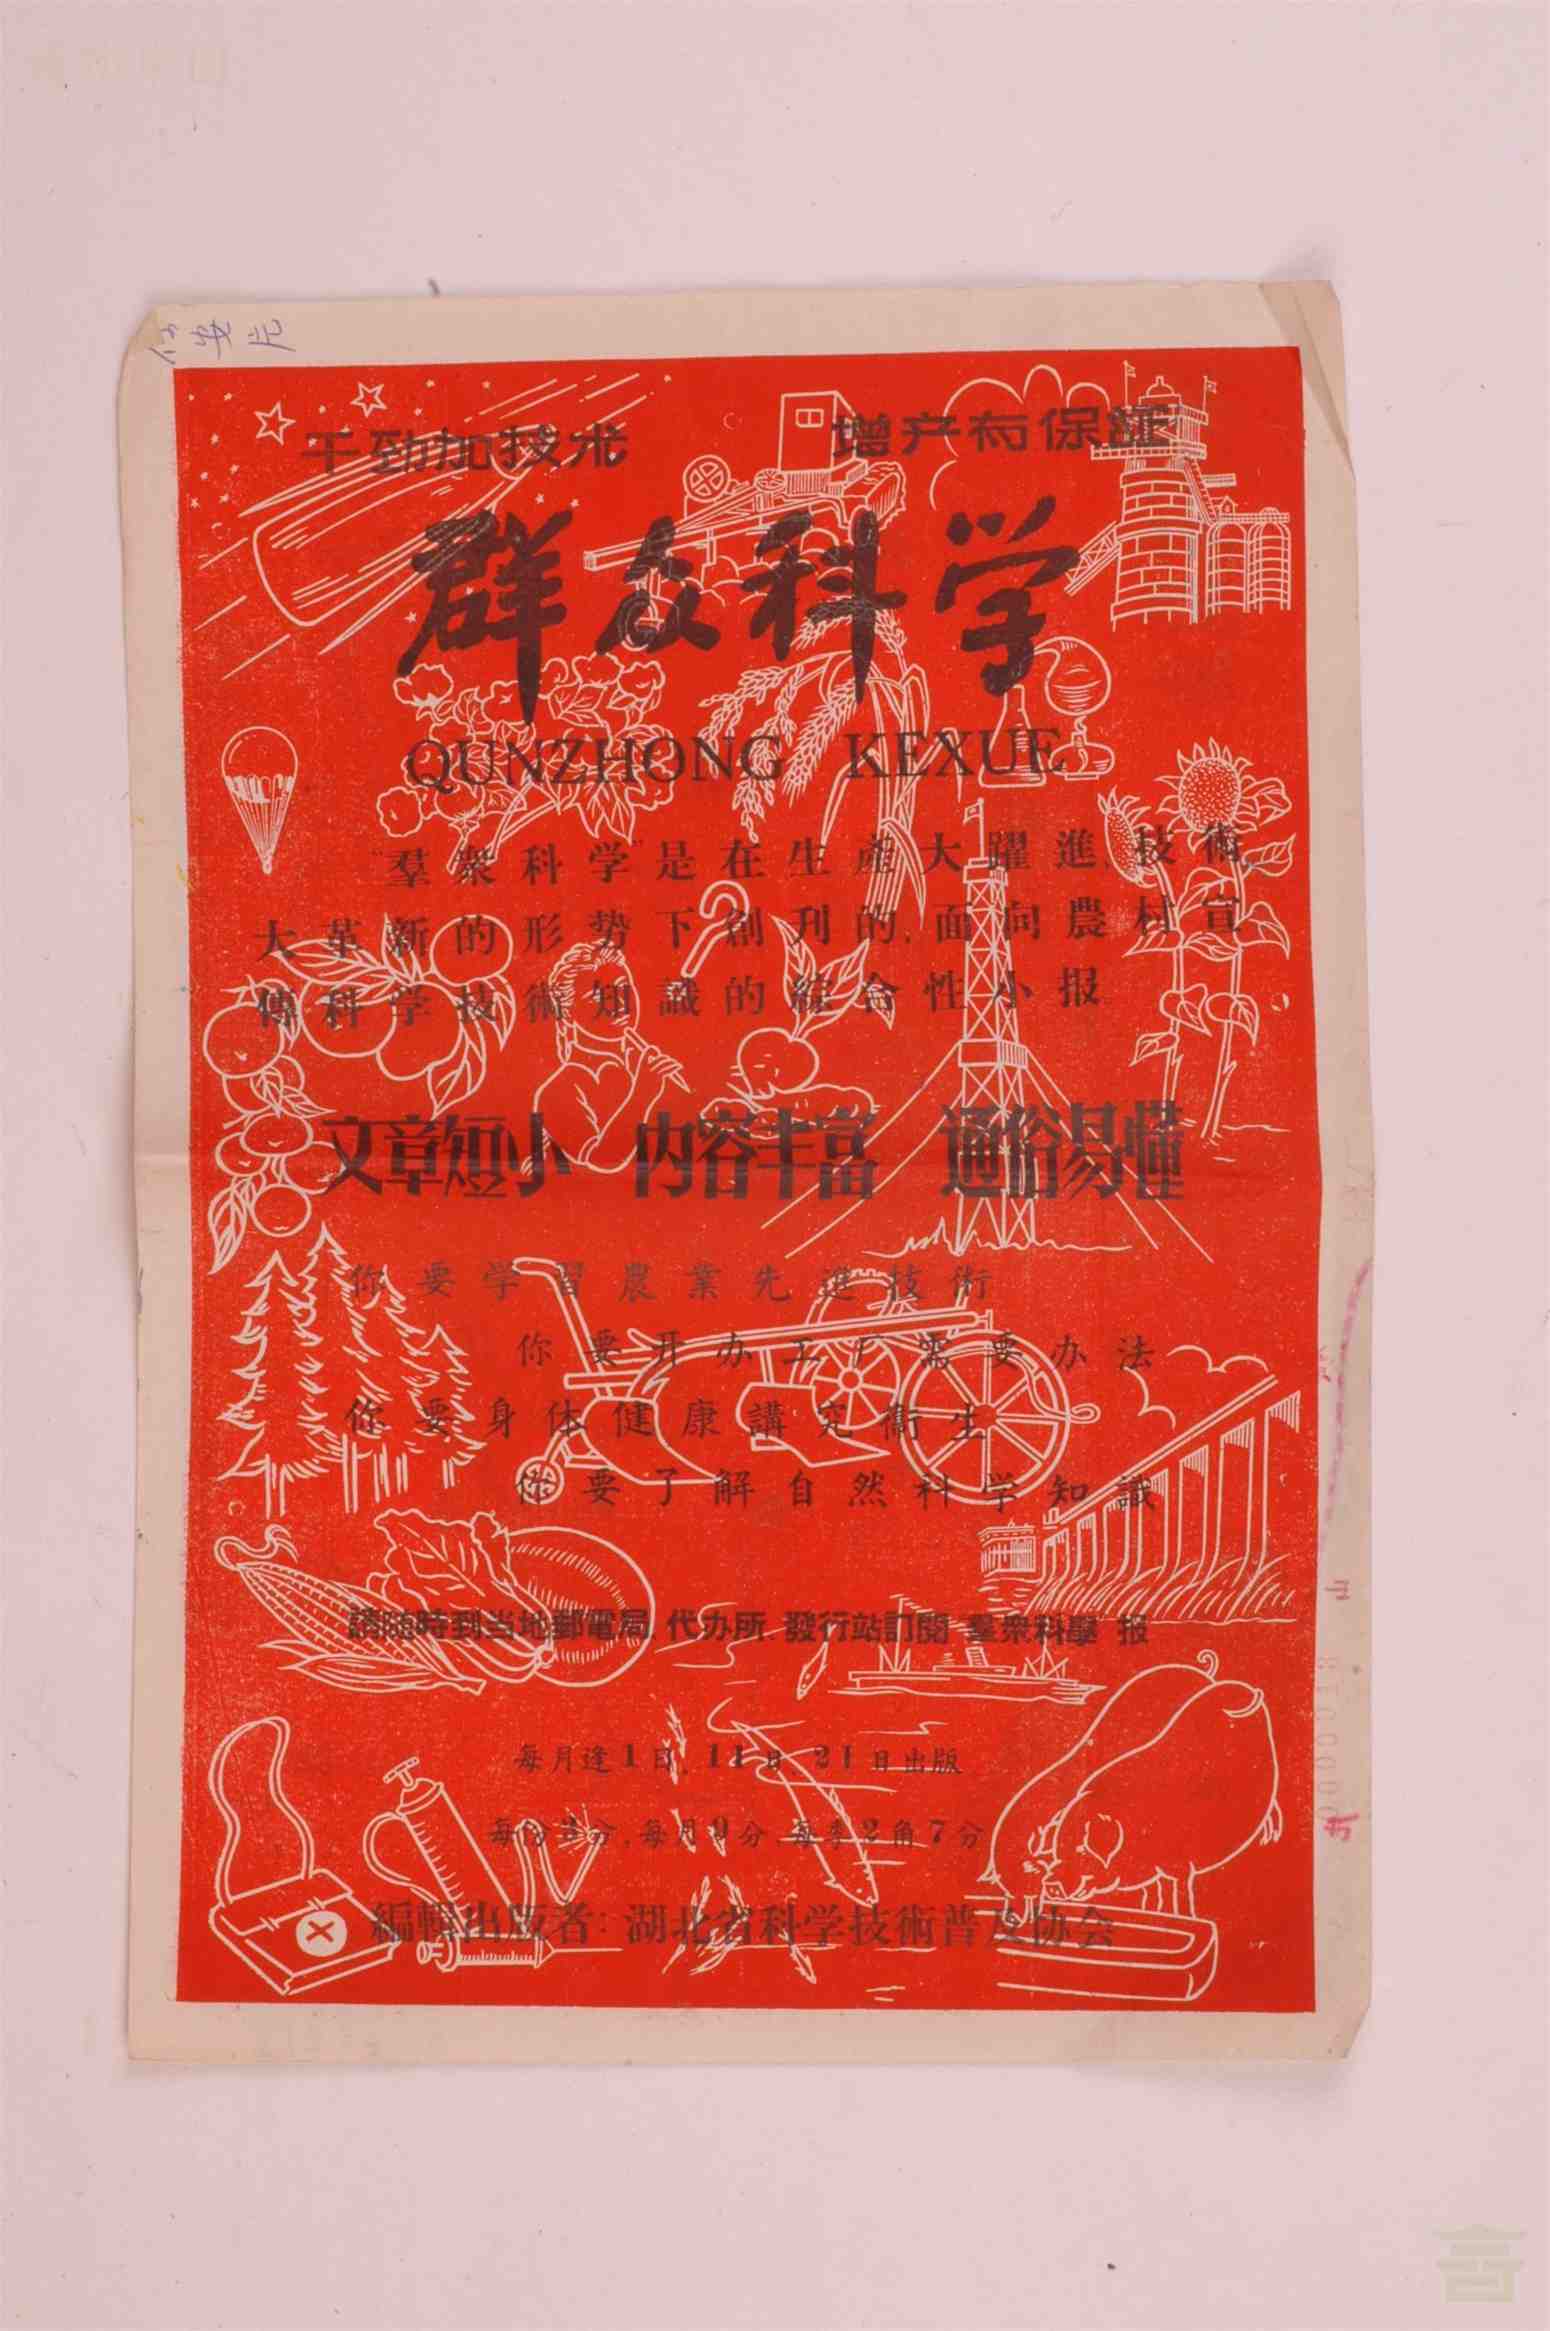 干劲加技术 增产有保証
群众科学
QUNZHONG KEXUE
"羣衆科学"是在生產大躍進、技術
大革新的形势下創刊的,面向農村宣
傳科学技術知識的綜合性小报。
文章短小 内容丰富 通俗易懂
你要学習農業先進技術
你要开办工厂需要办法
你要身体健康講究衞生
你要了解自然科学知識
請随時到当地郵電局、代办所、發行站訂閱"羣衆科學"报
每月逢1日、11日、21日出版
每份3分,每月9分,每季2角7分
編輯出版者:湖北省科学技術普及协会